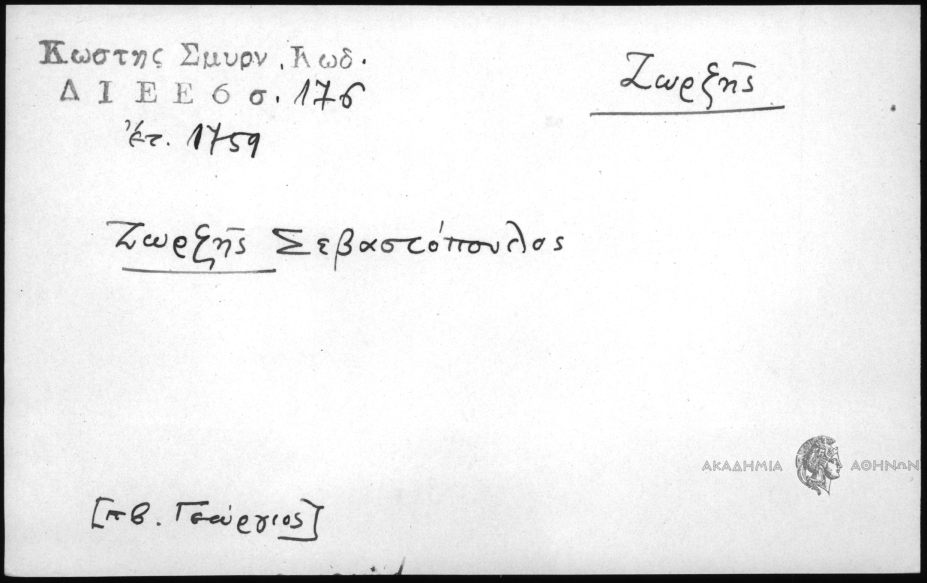 Κωστης Σμυρν. Κωδ.
Δ Ι Ε Ε 6 σ. 176
ἔτ. 1759
Ζωρζῆς
Ζωρζῆς Σεβαστόπουλος
ΑΚΑΔΗΜΙΑ ΑΘΗΝΩΝ
[πβ. Γεώργιος]